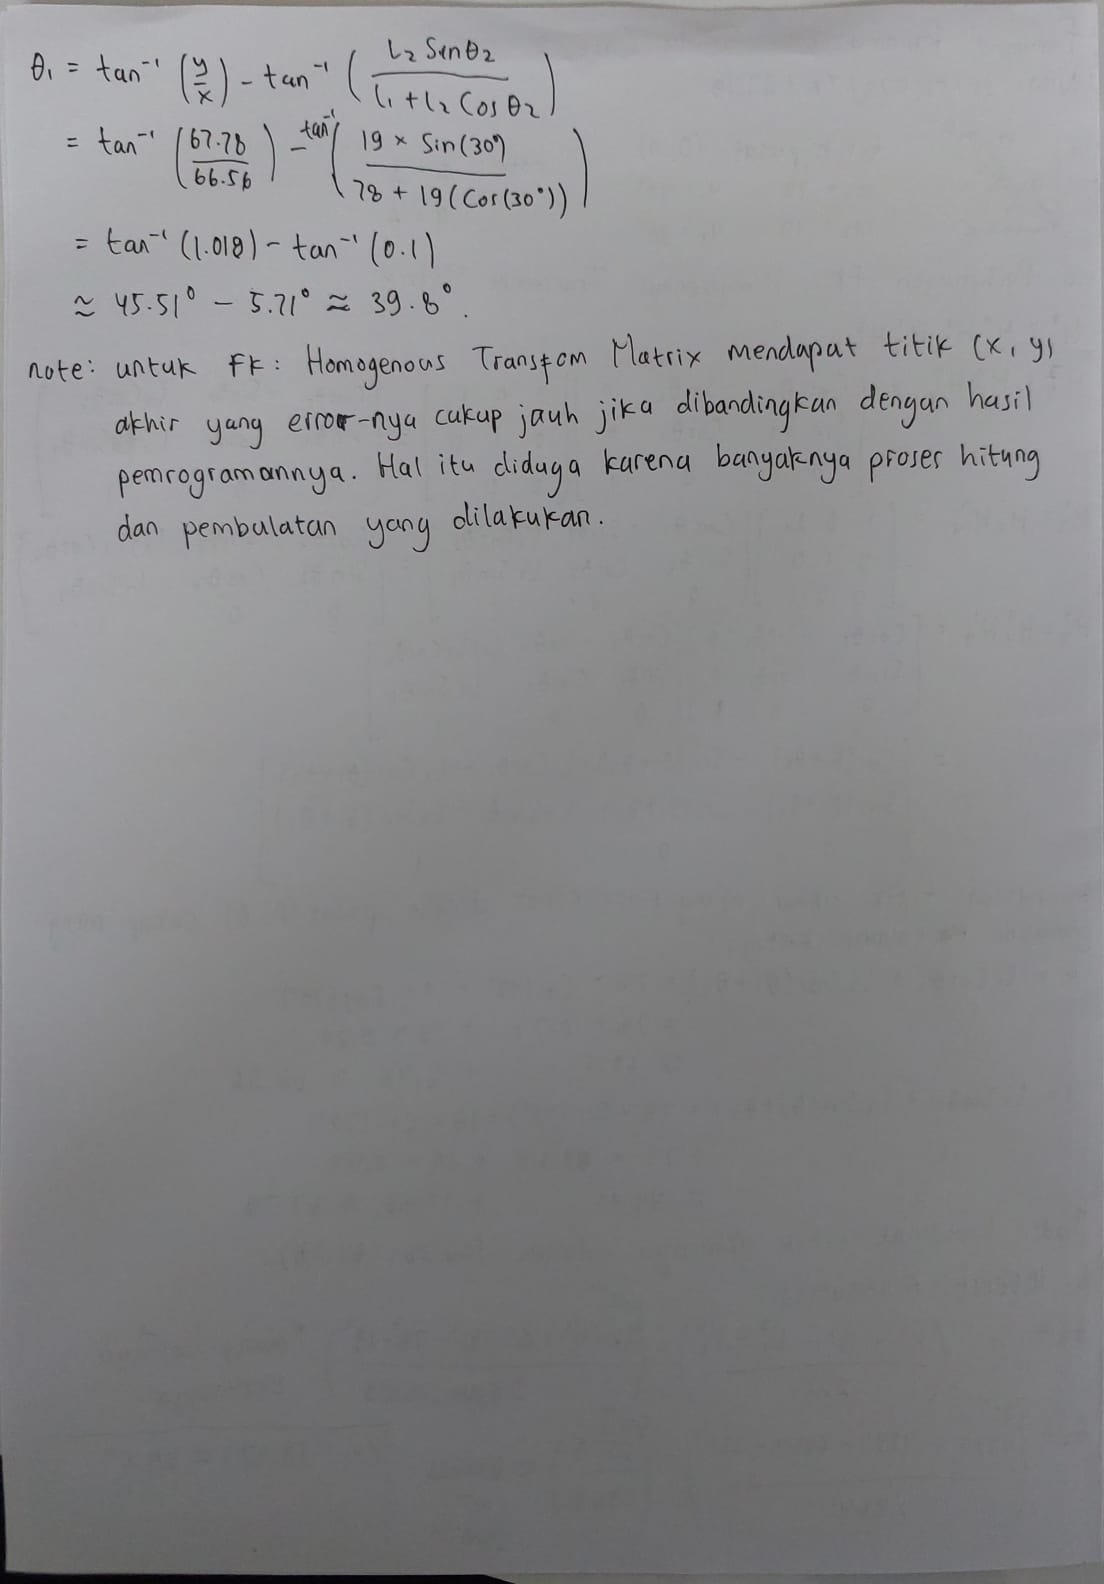 θ₁ = tan⁻¹ (y/x) - tan⁻¹ (L₂ Sinθ₂ / (l₁ + l₂ Cos θ₂))
= tan⁻¹ (67.78 / 66.56) - tan⁻¹ (19 × Sin(30°) / (78 + 19(Cos(30°))))
= tan⁻¹ (1.018) - tan⁻¹ (0.1)
≈ 45.51° - 5.71° ≈ 39.8°.
note: untuk FK: Homogenous Transfom Matrix mendapat titik (x, y)
akhir yang error-nya cukup jauh jika dibandingkan dengan hasil
pemrogramannya. Hal itu diduga karena banyaknya proses hitung
dan pembulatan yang dilakukan.